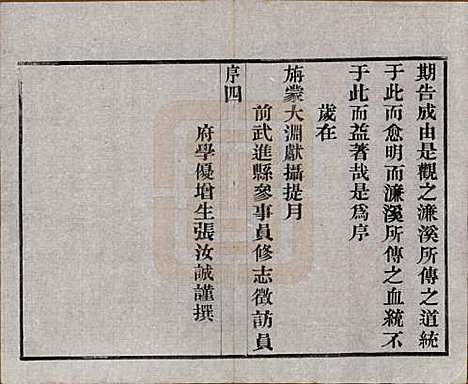 期告成由是觀之濂溪所傳之道統
于此而愈明而濂溪所傳之血統不
于此而益著哉是爲序
歲在
旃蒙大淵獻攝提月
前武進縣參事員修志徵訪員
府學優增生張汝誠謹撰
序四